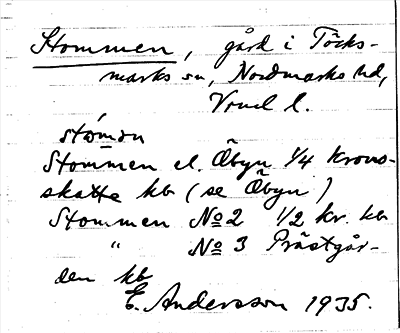 Stommen, gård i Töcks-
marks sn, Nordmarks hd,
Vrml l.
stómọn
Stommen el. Öbyn 1/4 krono-
skatte kb (se Öbyn)
Stommen No 2 1/2 kr. kb
" No 3 Prästgår-
den kb
E. Andersson 1935.